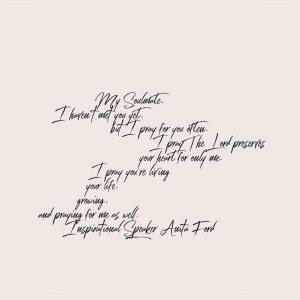 My Soulmate.
I haven't met you yet.
but I pray for you often.
I pray The Lord preserves
your heart for only me.
I pray you're living
your life.
growing.
and praying for me as well.
Inspirational Speaker Anita Ford